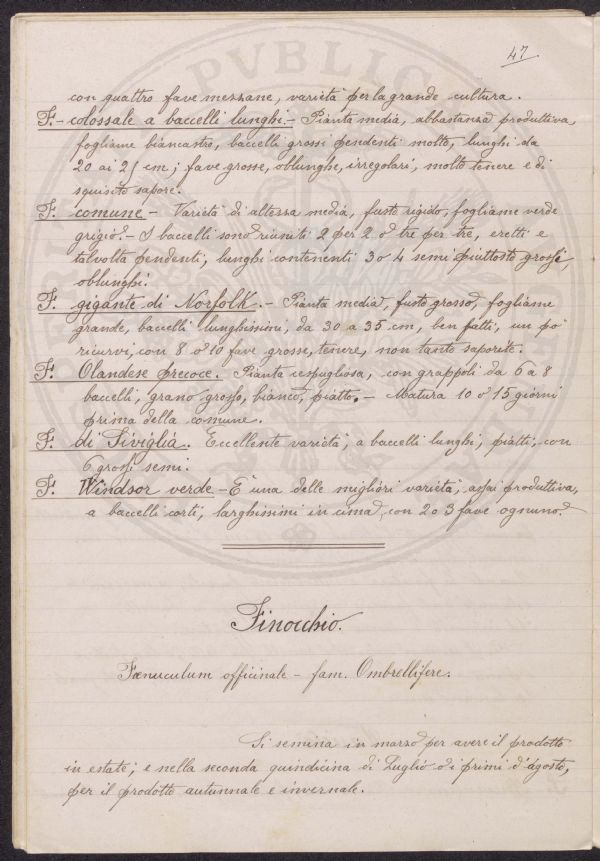 47
con quattro fave mezzane, varietà per la grande cultura.
F. - colossale a baccelli lunghi. - Pianta media, abbastanza produttiva,
fogliame biancastro, baccelli grossi pendenti molto, lunghi da
20 ai 25 cm; fave grosse, oblunghe, irregolari, molto tenere e di
squisito sapore.
F. comune - Varietà di altezza media, fusto rigido, fogliame verde
grigio. - I baccelli sono riuniti 2 per 2 o tre per tre, eretti e
talvolta pendenti, lunghi contenenti 3 o 4 semi piuttosto grossi,
oblunghi.
F. gigante di Norfolk. - Pianta media, fusto grosso, fogliame
grande, baccelli lunghissimi, da 30 a 35 cm, ben fatti, un pò
ricurvi, con 8 o 10 fave grosse, tenere, non tanto saporite.
F. Olandese precoce. Pianta cespugliosa, con grappoli da 6 a 8
baccelli, grano grosso, bianco, piatto. - Matura 10 o 15 giorni
prima della comune.
F. di Siviglia. Eccellente varietà, a baccelli lunghi, piatti, con
6 grossi semi.
F. Windsor verde - È una delle migliori varietà, assai produttiva,
a baccelli corti, larghissimi in cima, con 2 o 3 fave ognuno.
Finocchio.
Fænuculum officinale - fam. Ombrellifere.
Si semina in marzo per avere il prodotto
in estate; e nella seconda quindicina di Luglio o di primi d'agosto,
per il prodotto autunnale e invernale.